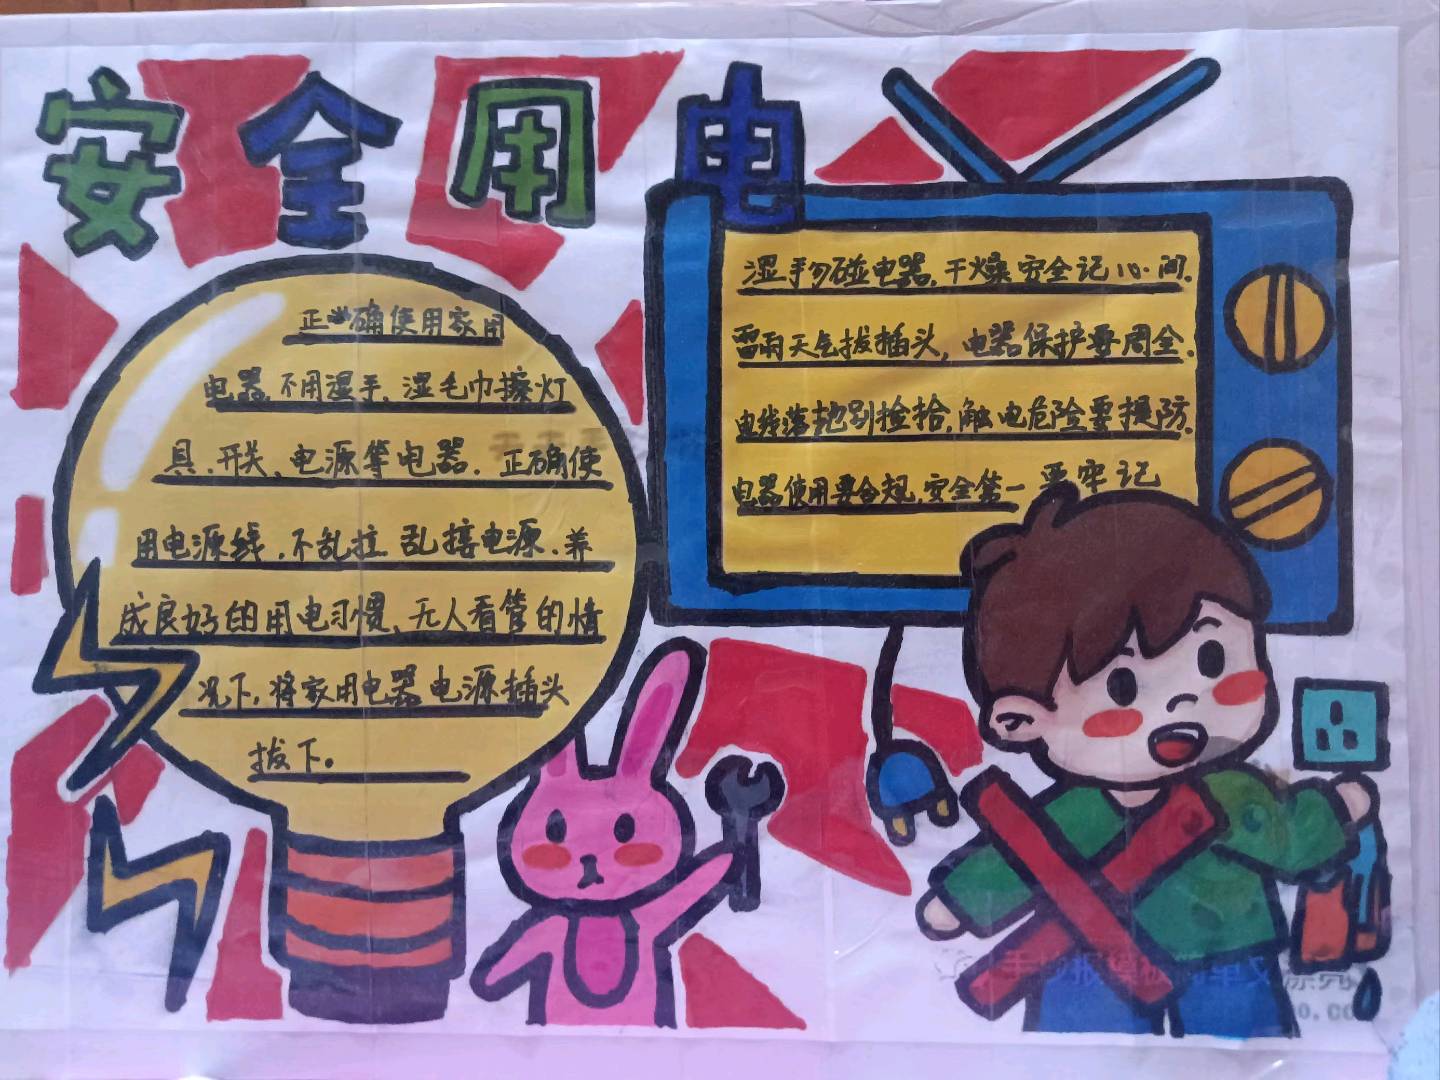 安全用电
正确使用家用
电器,不用湿手、湿毛巾擦灯
具、开关、电源等电器.正确使
用电源线,不乱拉 乱接电源.养
成良好的用电习惯、无人看管的情
况下,将家用电器电源插头
拔下。
湿手勿碰电器,干燥安全记心间.
雷雨天气拔插头,电器保护要周全.
电线落地别捡拾,触电危险要提防.
电器使用要合规,安全第一要牢记